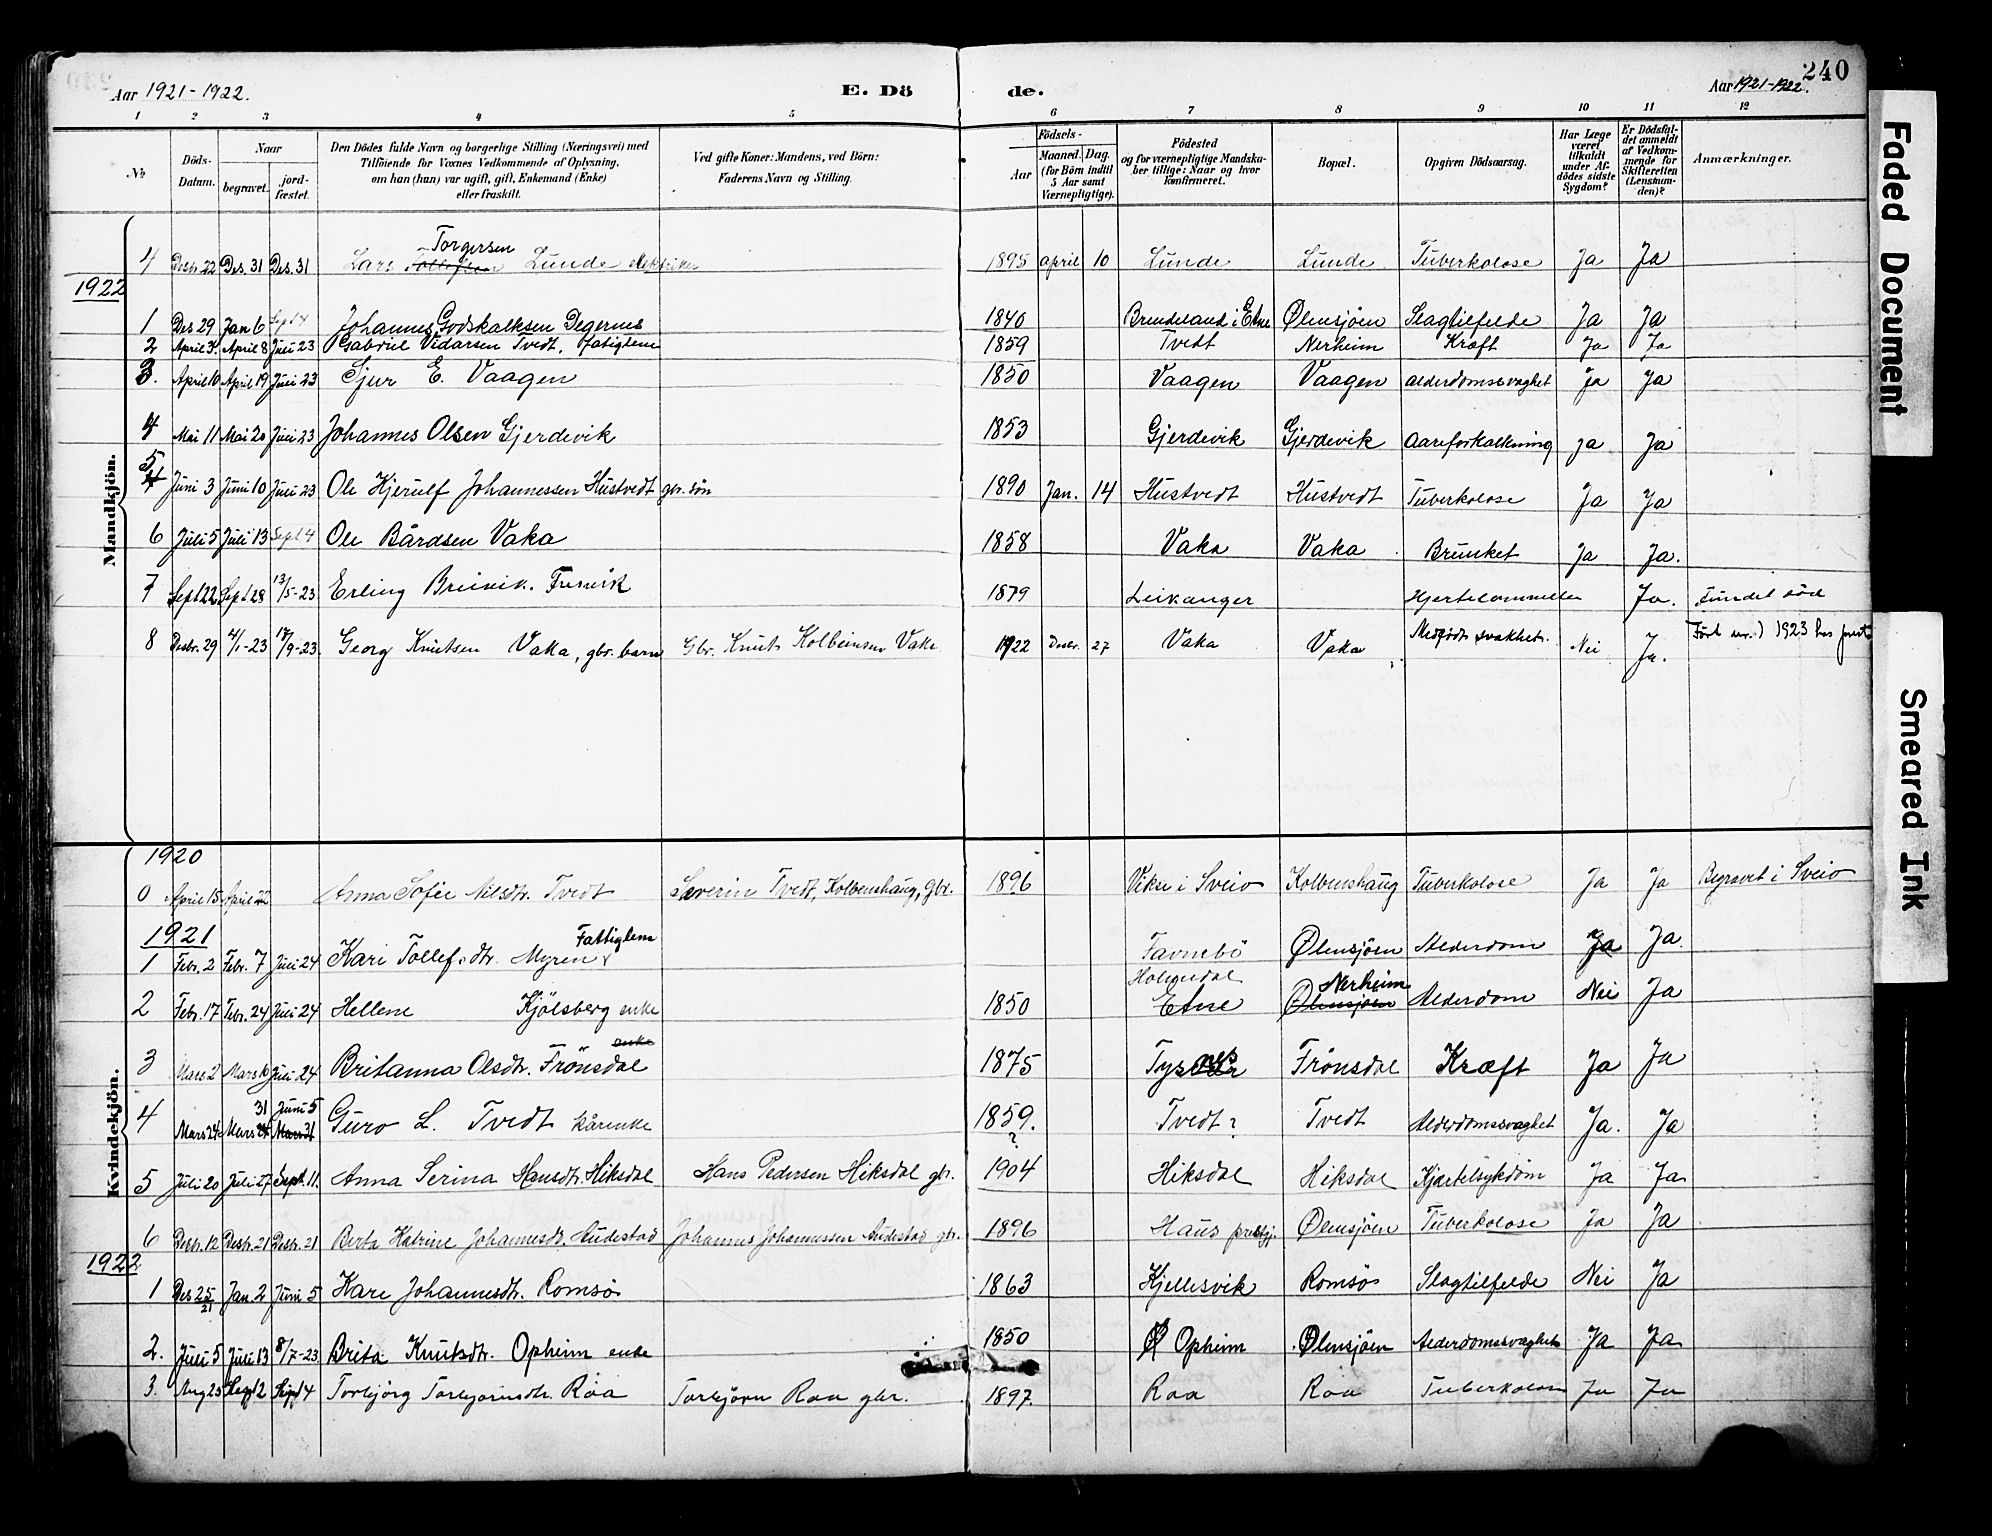 240
Aar 1921-1922.
E. Dö
de.
Aar 1921-1922.
1 2 3 4 5 6 7 8 9 10 11 12
№
Döds-Datum.
Naar
begravet.
jord-fæstet.
Den Dödes fulde Navn og borgerlige Stilling (Næringsvei) med
Tilföiende for Voxnes Vedkommende af Oplysning,
om han (hun) var ugift, gift, Enkemand (Enke)
eller fraskilt.
Ved gifte Koner: Mandens, ved Börn:
Faderens Navn og Stilling.
Födsels-
Aar
Maaned. Dag.
(for Börn indtil
5 Aar samt
Værnepligtige).
Födested
og for værnepligtige Mandska-
ber tillige: Naar og hvor
konfirmeret.
Bopæl.
Opgiven Dödsaarsag.
Har Læge
været
tilkaldt
under Af-
dödes sidste
Sygdom?
Er Dödsfal-
det anmeldt
af Vedkom-
mende for
Skifteretten
(Lensman-
den)?
Anmærkninger.
Mandkjön.
4 Desbr. 22 Des. 31 Des. 31 Lars Tollefsen Torgersen Lunde elektriker 1895 april 10 Lunde Lunde Tuberkolose Ja Ja
1922
1 Des 29 Jan 6 Sept 4 Johannes Godskalksen Degernes 1840 Brendeland i Etne Ølensjøen Slagtilfelde Ja Ja
2 April 3 April 8 Juli 23 Gabriel Vidarsen Tvedt, fatiglem 1859 Tvedt Nerheim Kræft Ja Ja
3. April 10 April 19 Juli 23 Sjur E. Vaagen 1850 Vaagen Vaagen alderdomssvaghet Ja Ja
4 Mai 11 Mai 20 Juli 23 Johannes Olsen Gjerdevik 1853 Gjerdevik Gjerdevik Aareforkalkning Ja Ja
5 Juni 3 Juni 10 Juli 23 Ole Hjerulf Johannessen Hustvedt gbr. søn 1890 Jan. 14 Hustvedt Hustvedt Tuberkolose Ja Ja
6 Juli 5 Juli 13 Sept 4 Ole Bårdsen Vaka 1858 Vaka Vaka Brunket Ja Ja.
7 Sept 22 Sept 28 13/5-23 Erling Breivik. 1879 Leikanger Ja. Fundet död
8 Desbr. 29 4/1-23 17/9-23 Georg Knutsen Vaka, gbr. barn Gbr. Knut Kolbeinsen Vaka 1922 Desbr. 27 Vaka Vaka Medfødt svakhet. Nei Ja. Ført nr. 1 1923
Kvindekjön.
1920
0 April 15 April 22 Anna Sofie Nilsdtr. Tvedt Severin Tvedt, Kolbenshaug, gbr. 1896 Vikse i Sveio Kolbenshaug Tuberkolose Ja Ja Begravet i Sveio
1921
1 Febr. 2 Febr. 7 Juli 24 Kari Tollefsdtr. Myren Fattiglem Favnebö Ølensjøen Alderdom Ja Ja.
2 Febr. 17 Febr. 24 Juli 24 Hellene Kjölsberg enke 1850 Etne Ølensjøen Nerheim Alderdom Nei Ja
3 Mars 2 Mars 10 Juli 24 Britanna Olsdtr. Frönsdal enke 1875 Frönsdal Kræft Ja Ja
4 Mars 24 Mars 31 Mars 31 Juni 5 Guro L. Tvedt kårenke 1859. ? Tvedt? Tvedt Alderdomssvaghet Ja. Ja
5 Juli 20 Juli 27 Sept. 11. Anna Serina Hansdtr. Hiksdal Hans Pedersen Hiksdal gbr. 1904 Hiksdal Hiksdal Kjertelsykdom Ja Ja
6 Desbr. 12 Desbr. 21 Desbr. 21 Berta Katrine Johannesdtr. Audestad Johannes Johannessen Audestad gbr. 1896 Haus prestgj. Ølensjøen Tuberkolose Ja Ja
1922
1 Des 25 21 Jan. 2 Juni 5 Kari Johannesdtr. Romsø 1863 Kjellesvik Romsø Slagtilfelde Nei Ja
2. Juli 5 Juli 13 8/7-23 Brita Knutsdtr. Opheim enke 1850 Opheim Ølensjöen Alderdomssvaghet Ja Ja
3. Aug 25 Sept 2 Sept 4 Torbjörg Torbjörnsdtr. Røa Torbjörn Raa gbr. 1897. Raa Raa Tuberkolose Ja Ja
Faded Document
Smeared Ink